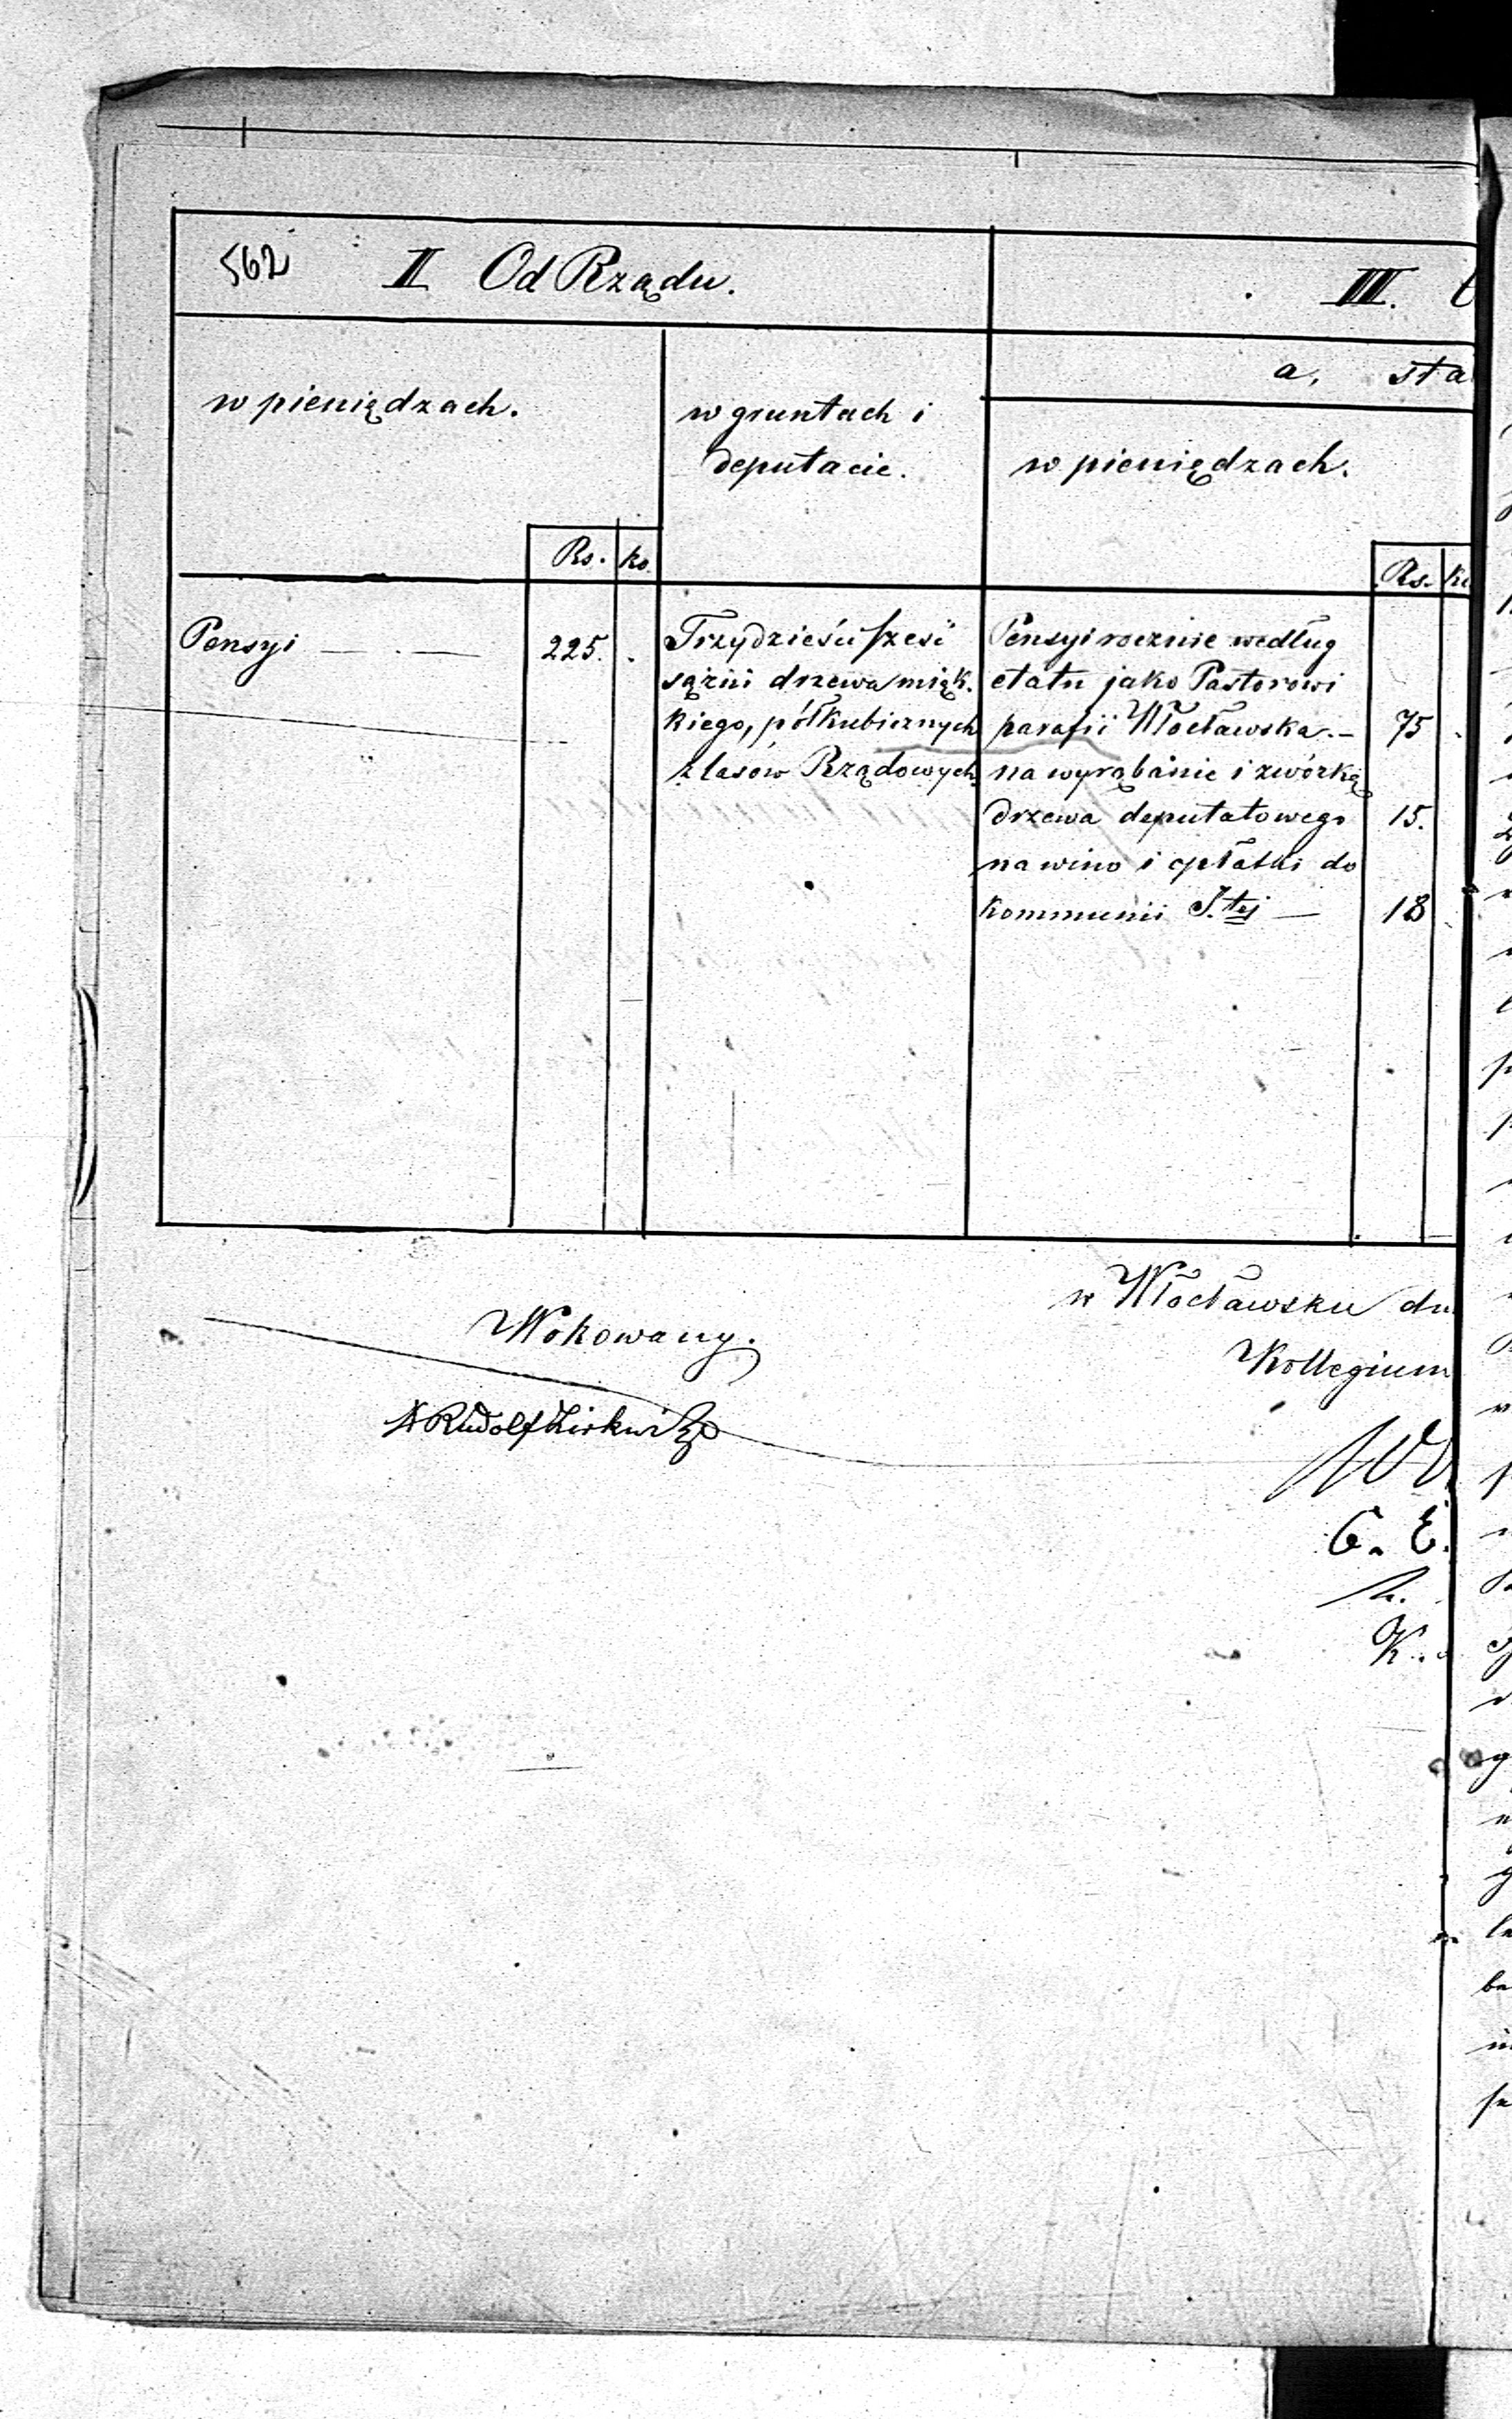 562 II Od Rządu.
III.
a. sta
w pieniędzach.
w gruntach i
deputacie.
w pieniędzach.
Rs. ko.
Rs. ko
Pensyi — . — 225.
Trzydzieści sześć
sążni drzewa mięk.
kiego, półkubicznych
z lasów Rządowych.
Pensyi rocznie według
etatu jako Pastorowi
parafii Włocławska. — 75
na wyrąbanie i zwózkę
drzewa deputatowego 15.
na wino i opłatki do
kommunii S.tej — 18
w Włocławsku dn
Wokowany.
Kollegium
Rudolf
C. E.
K.